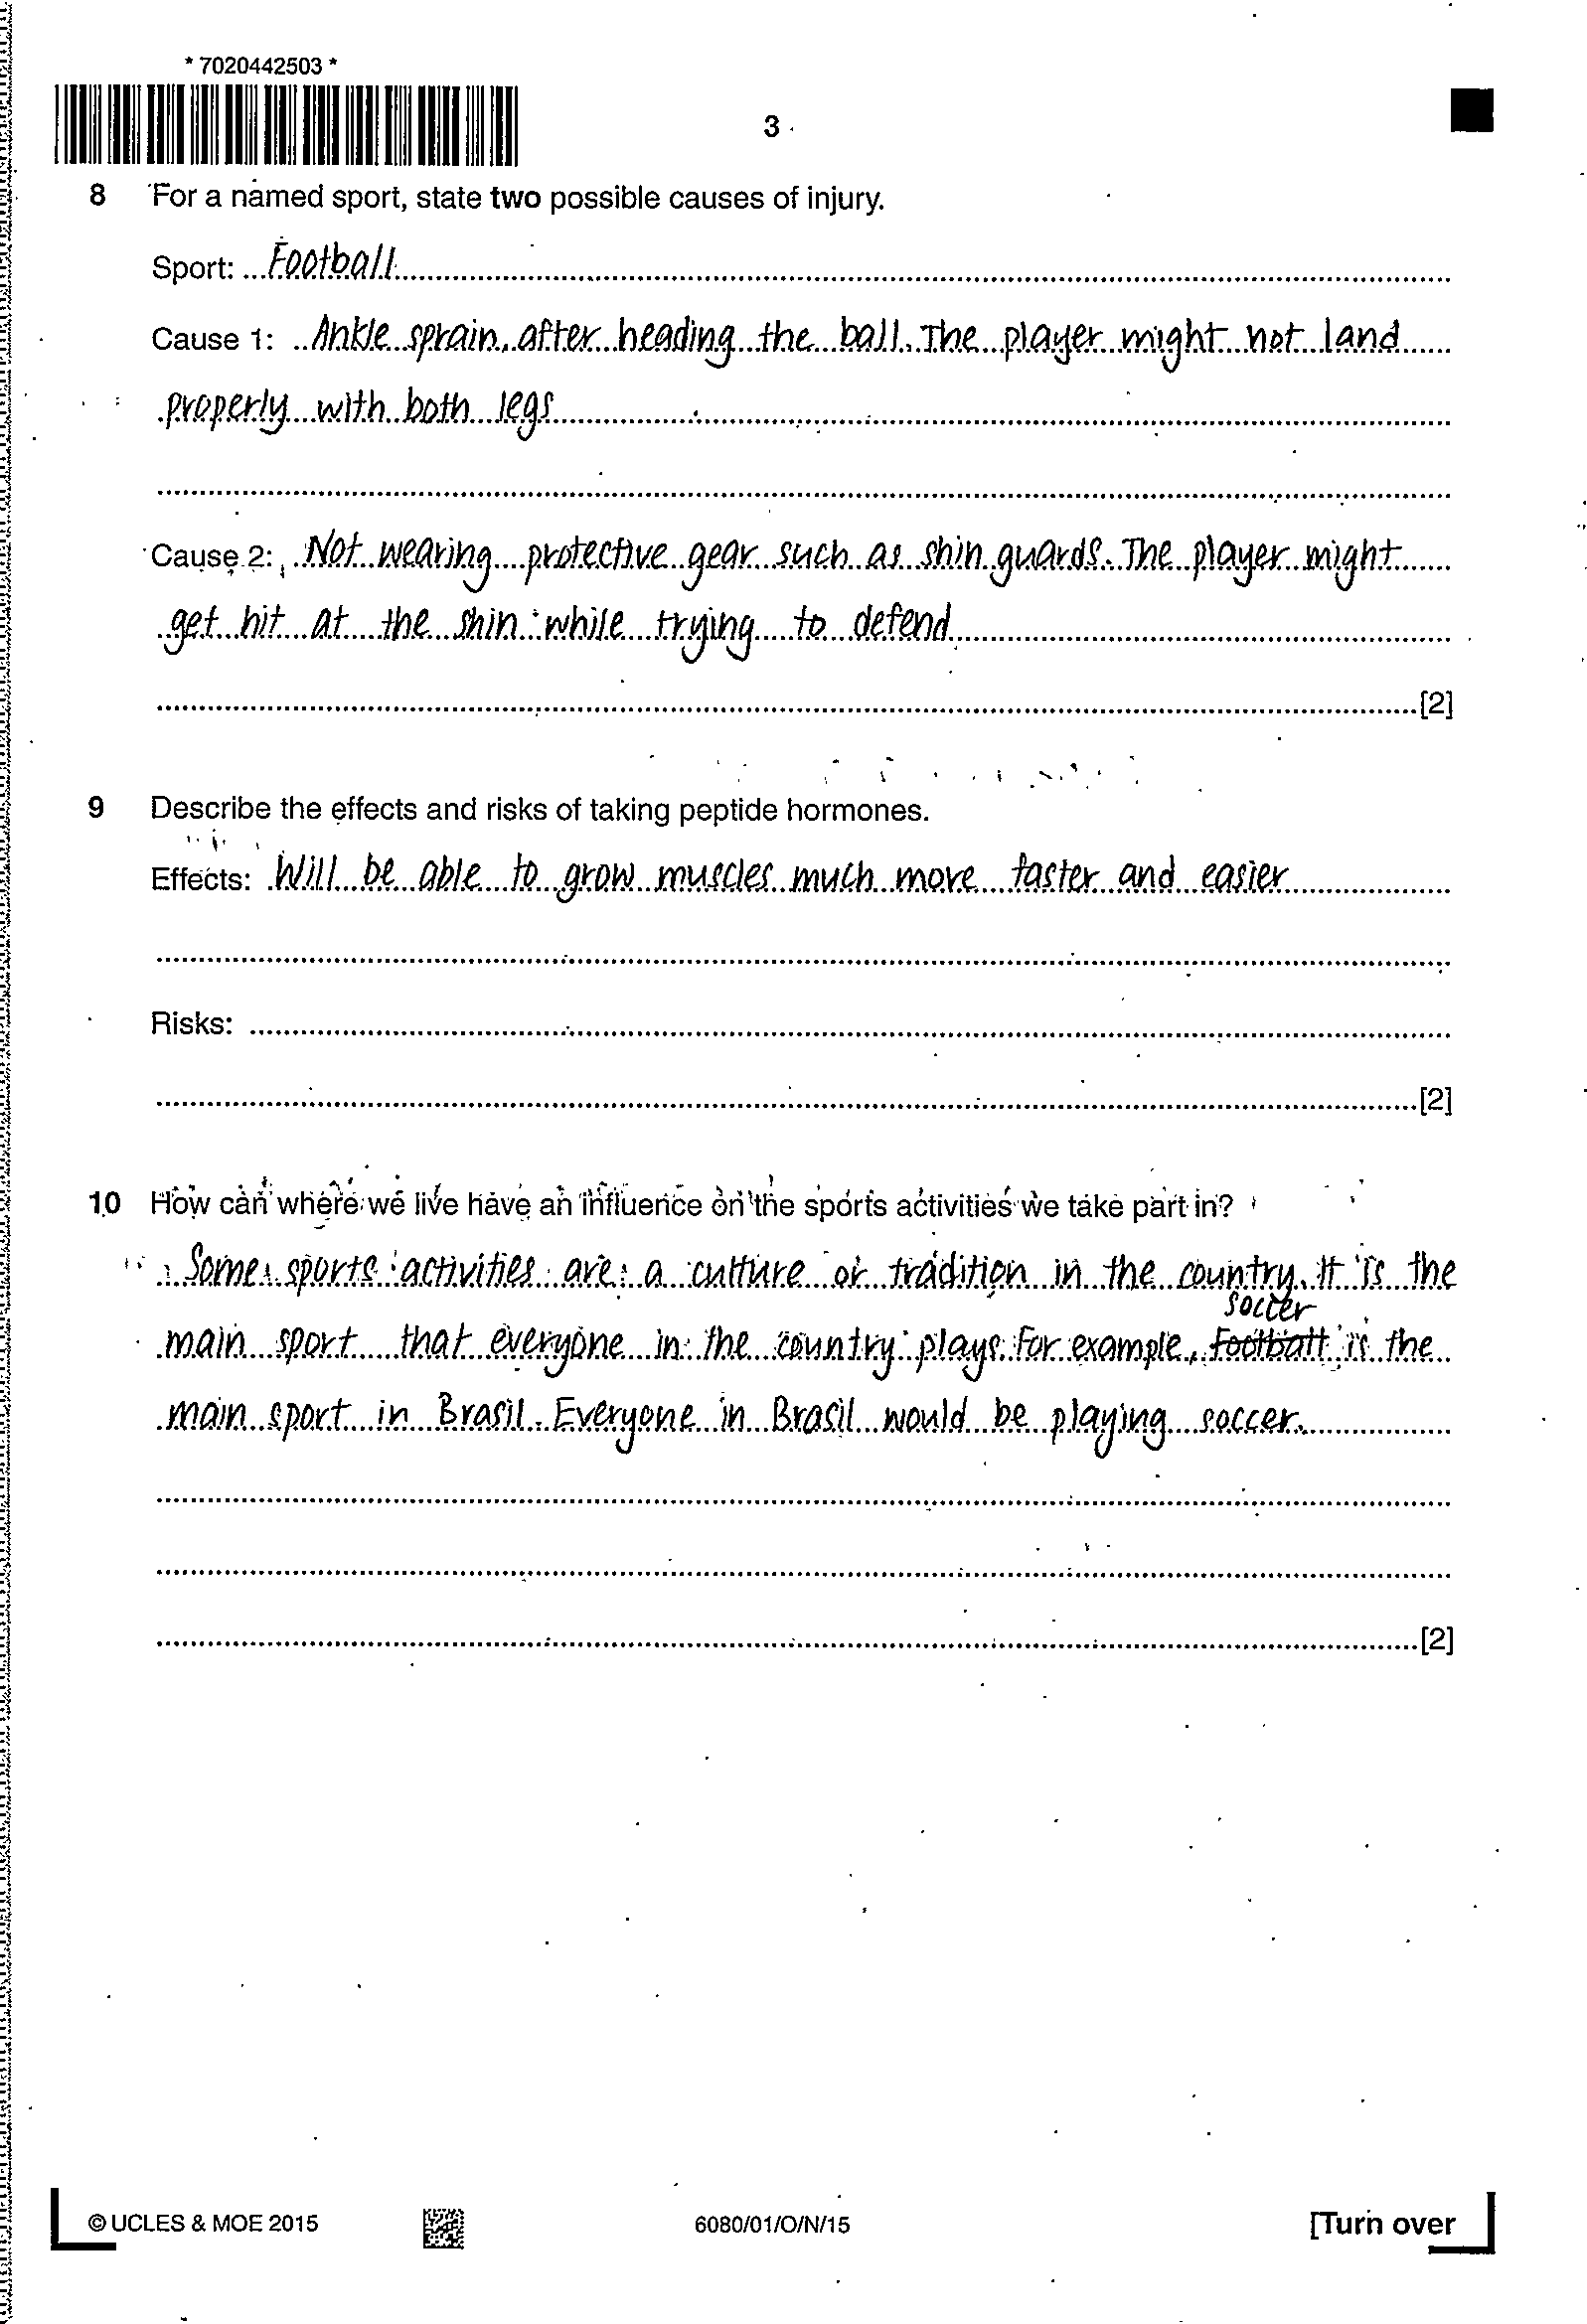 * 7020442503 *
3
8 For a named sport, state two possible causes of injury.
Sport: Football
Cause 1: Ankle sprain, after heading the ball. The player might not land
properly with both legs
Cause 2: Not wearing protective gear such as shin guards. The player might
get hit at the shin while trying to defend
[2]
9 Describe the effects and risks of taking peptide hormones.
Effects: Will be able to grow muscles much more faster and easier
Risks:
[2]
10 How can where we live have an influence on the sports activities we take part in?
Some sports activities are a culture or tradition in the country. It is the
soccer
main sport that everyone in the country plays. For example, football is the
main sport in Brasil. Everyone in Brasil would be playing soccer.
[2]
© UCLES & MOE 2015
6080/01/O/N/15
[Turn over